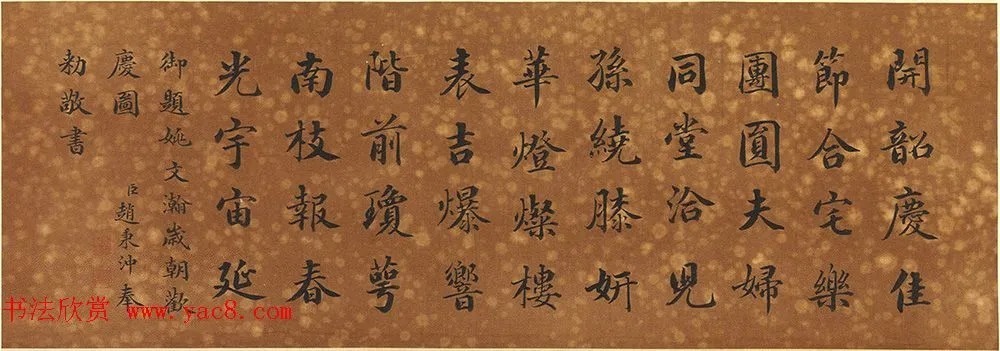 開韶慶佳
節合宅樂
團圓夫婦
同堂洽兒
孫繞膝妍
華燈燦樓
表吉爆響
階前瓊萼
南枝報春
光宇宙延
御題姚文瀚歲朝歡
慶圖
臣趙秉沖奉
勅敬書
书法欣赏 www.yac8.com